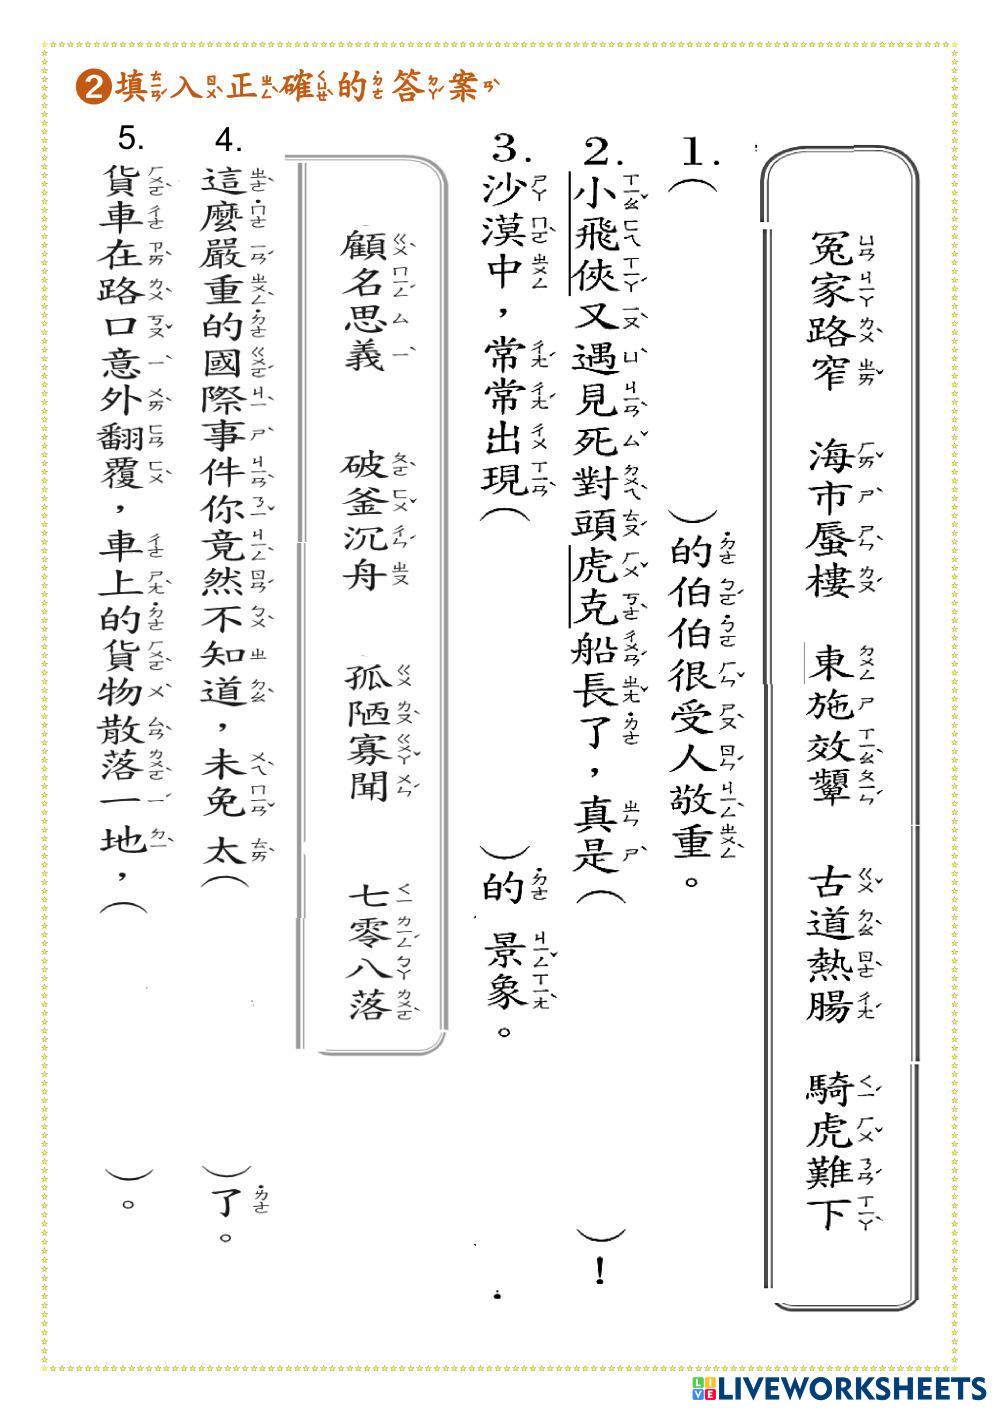 ❷填入正確的答案
冤家路窄 海市蜃樓 東施效顰 古道熱腸 騎虎難下
1.（ ）的伯伯很受人敬重。
2.小飛俠又遇見死對頭虎克船長了，真是（ ）！
3.沙漠中，常常出現（ ）的景象。
顧名思義 破釜沉舟 孤陋寡聞 七零八落
4.這麼嚴重的國際事件你竟然不知道，未免太（ ）了。
5.貨車在路口意外翻覆，車上的貨物散落一地，（ ）。
LIVEWORKSHEETS